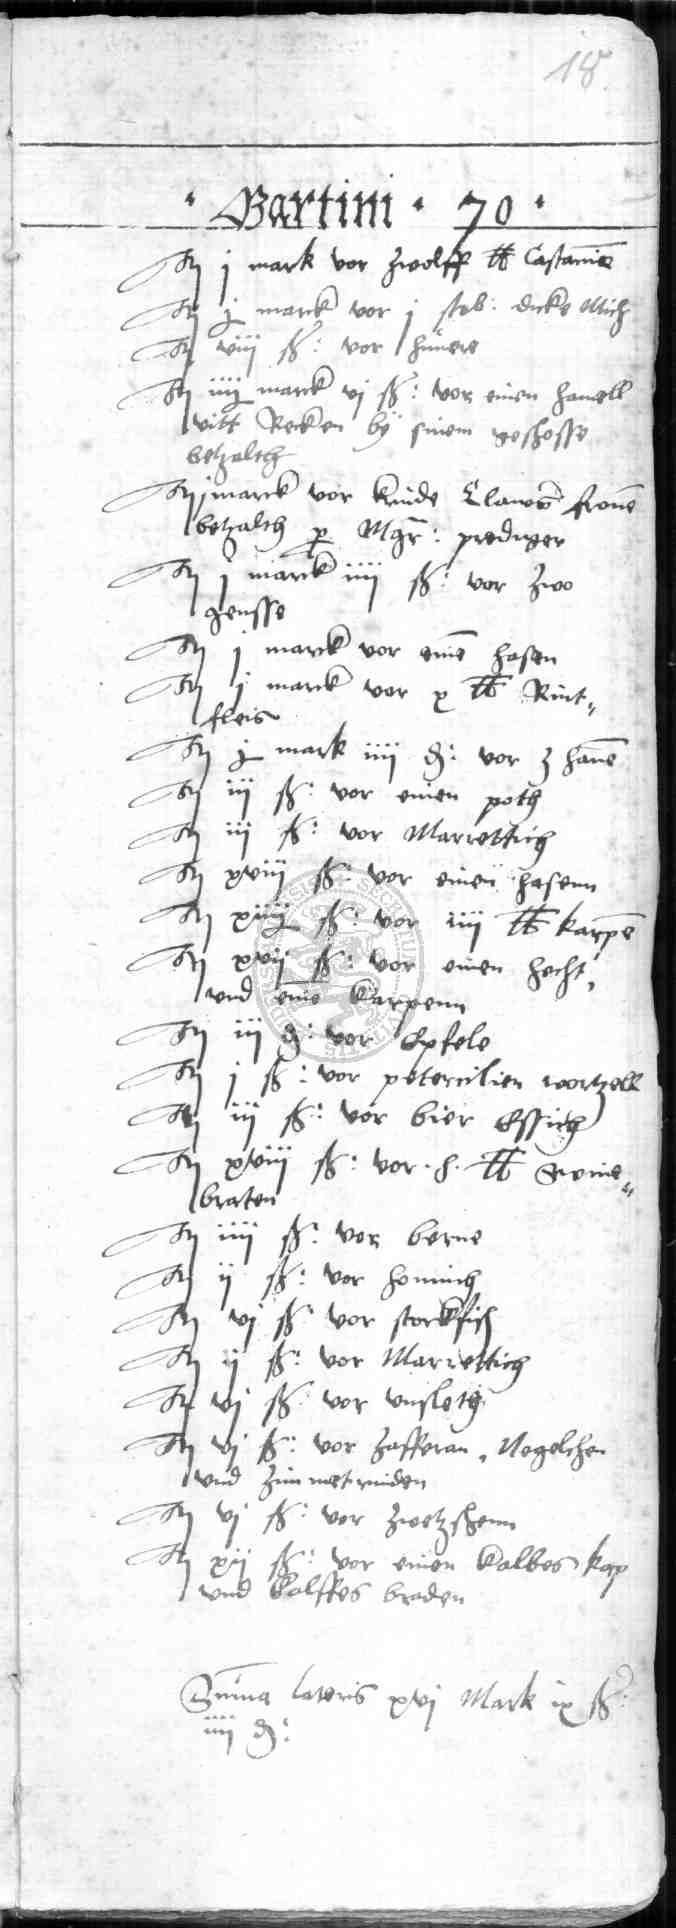 18
· Martini · 70 ·
It j mark vor zwolff lb Castanie
It j marck vor j stob: dicke Milch
It viij ß: vor hünere
It iiij marck vj ß: vor einen hamell
vitt Recken by sinem geschosse
betzalth
It j marck vor kinde Clawes frone
betzalth p Mgr: prediger
It j marck iiij ß: vor zwo
gensse
It j marck vor eine hasen
It j marck vor x lb Rint„
fleis
It j mark iiij d: vor 3 hane
It iij ß: vor einen poth
It iij ß: vor Marrettich
It xviij ß: vor einen hasenn
It xiiij ß: vor iiij lb karpe
It xvij ß: vor einen hecht,
vnd eine karpenn
It iij d: vor Epfele
It j ß: vor petercilien wortzell
It iij ß: vor bier Essich
It xviij ß: vor lb Swine„
braten
It iiij ß: vor berne
It ij ß: vor honnich
It vj ß: vor stockfish
It ij ß: vor Marrettich
It vj ß: vor vnsleth
It vj ß: vor zafferan, Negelchen
vnd Zimmetrinden
It vj ß: vor zwetzschenn
It xij ß: vor einen kalbes kop
vnd kalffes braden
Suma lateris xvj Mark ix ß:
iiij d: